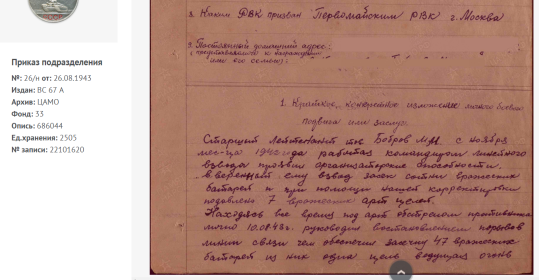 Приказ подразделения
№: 26/н от: 26.08.1943
Издан: ВС 67 А
Архив: ЦАМО
Фонд: 33
Опись: 686044
Ед.хранения: 2505
№ записи: 22101620
8. Каким РВК призван: Первомайским РВК г. Москва
9. Постоянный домашний адрес:
(представляемого к награждению
или его семьи):
1. Краткое, конкретное изложение личного боевого
подвига или заслуг.
Старший лейтенант Бобров М.М. с ноября
месяца 1942 года работая командиром
взвода проявил организаторские способности,
вверенный ему взвод засек сотни вражеских
батарей и при помощи нашей корректировки
подавлено 7 вражеских арт целей.
Находясь все время под арт обстрелом противника
лично 10.08.43г. руководил восстановлением порывов
линии связи чем обеспечил засечку 47 вражеских
батарей из них одна цель ведущая огонь